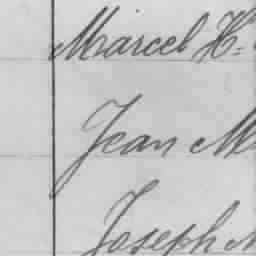 Marcel H.
Jean M
Joseph M